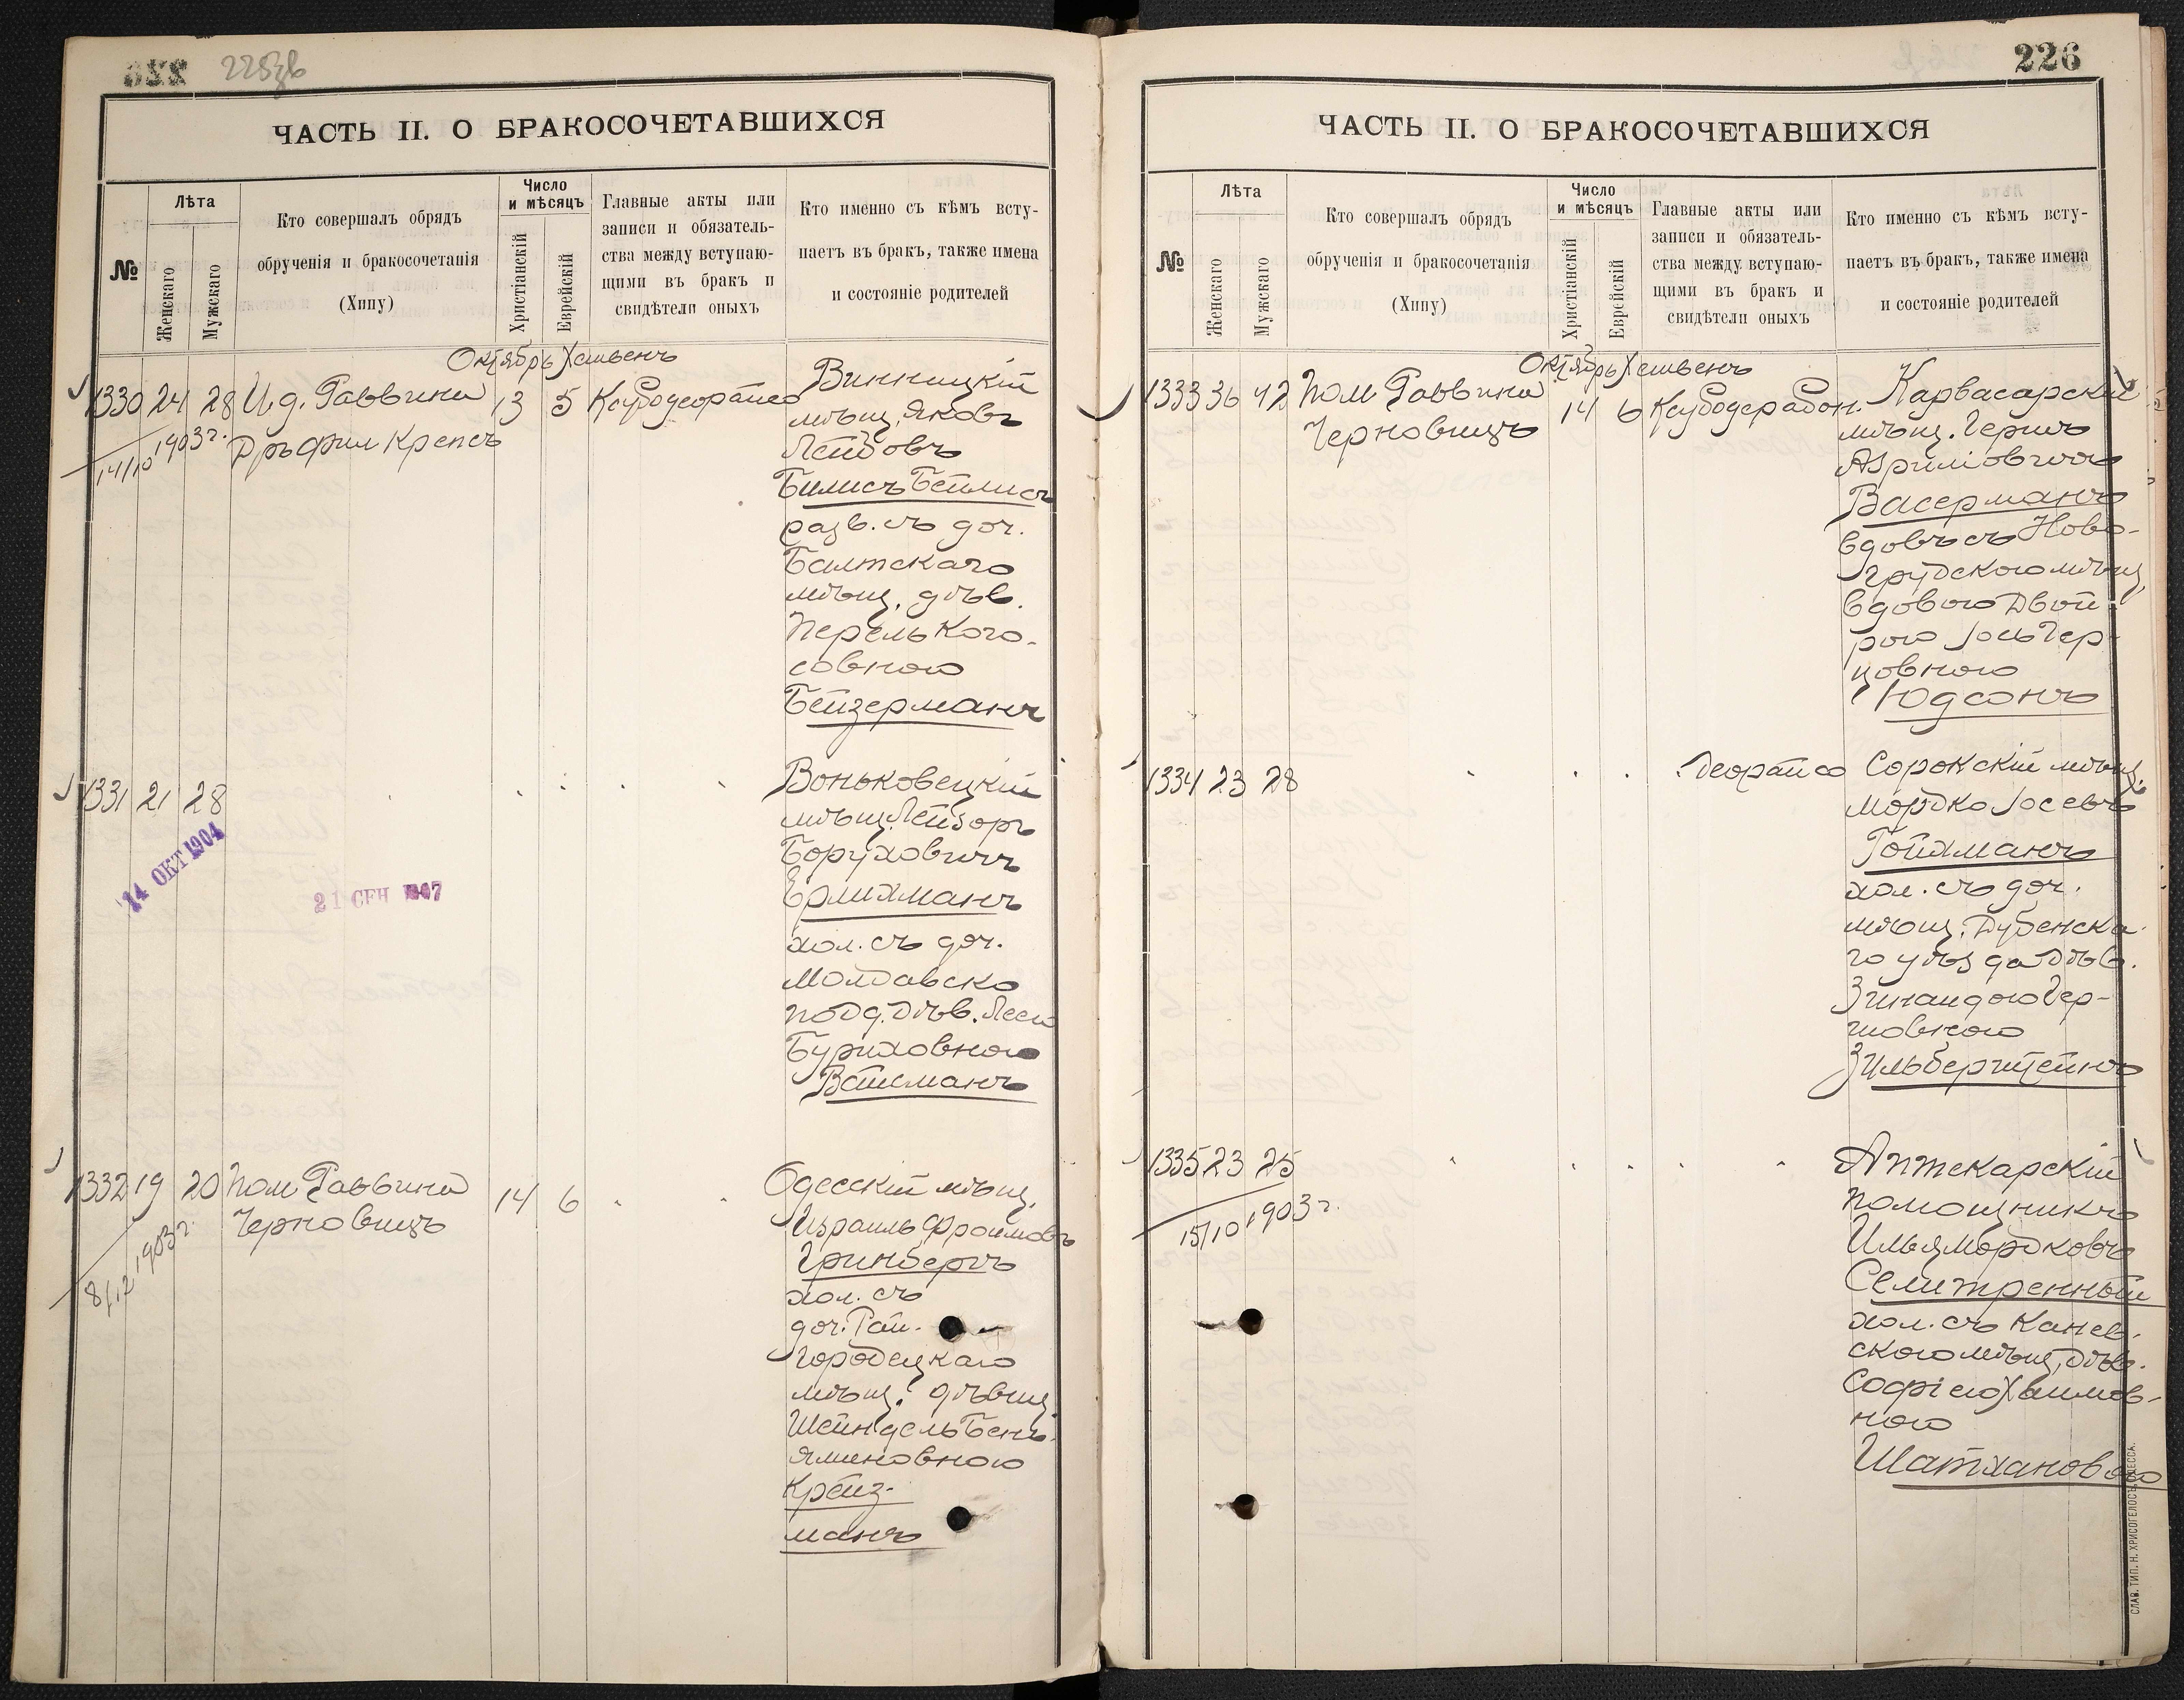 225зв
ЧАСТЬ II. О БРАКОСОЧЕТАВШИХСЯ
№
Лѣта
Женскаго
Мужскаго
Кто совершалъ обрядъ
обрученія и бракосочетанія
(Хипу)
Число
и мѣсяцъ
Христіанскій
Еврейскій
Главные акты или
записи и обязатель-
ства между вступаю-
щими въ бракъ и
свидѣтели оныхъ
Кто именно съ кѣмъ всту-
паетъ въ бракъ, также имена
и состояніе родителей
Октябрь Хешвенъ
1330 24 28 И.д. Раввина 13 5
14/10 1903 г.
Дръ Фил Крепсъ
Винницкій
мѣщ. Яковъ
Лейбовъ
Билисъ Бейлисъ
разв. съ доч.
Балтскаго
мѣщ. дѣв.
Перель Кого-
совною
Бейзерманъ
1331 21 28
14 ОКТ 1904
21 СЕН 1907
Воньковецкій
мѣщ. Лейзоръ
Боруховичъ
Ерлихманъ
хол. съ доч.
Молдавско
подд. дѣв. Леею
Буриховною
Вайсманъ
1332 19 20 Пом Раввина 14 6
Черновицъ
8/12 1903 г.
Одесскій мѣщ.
Израиль Фроимовъ
Гринбергъ
хол. съ
доч. Рай-
городецкаго
мѣщ. дѣвиц.
Шейндель Бень-
яминовною
Крейз-
манъ
226
ЧАСТЬ II. О БРАКОСОЧЕТАВШИХСЯ
№
Лѣта
Женскаго
Мужскаго
Кто совершалъ обрядъ
обрученія и бракосочетанія
(Хипу)
Число
и мѣсяцъ
Христіанскій
Еврейскій
Главные акты или
записи и обязатель-
ства между вступаю-
щими въ бракъ и
свидѣтели оныхъ
Кто именно съ кѣмъ всту-
паетъ въ бракъ, также имена
и состояніе родителей
Октябрь Хешвенъ
1333 36 42 Пом Раввина 14 6
Черновицъ
Карвасарскій
мѣщ. Гершъ
Азриліовичъ
Васерманъ
вдовъ съ Ново-
грудскою мѣщ.
вдовою Двой-
рою Іось Гер-
цовною
Юдсонъ
1334 23 28
Сорокскій мѣщ.
Мордко Іосевъ
Гойхманъ
хол. съ доч.
мѣщ. Дубенска-
го уѣзда дѣв.
Зинаидою Гер-
шовною
Зильберштейнъ
1335 23 25
15/10 1903 г.
Аптекарскій
помощникъ
Илья Мордковъ
Семитренный
хол. съ Канев-
скою мѣщ. дѣв.
Софіею Хаимов-
ною
Шатхановою
СЛАВ. ТИП. Н. ХРИСОГЕЛОСЪ, ОДЕССА.